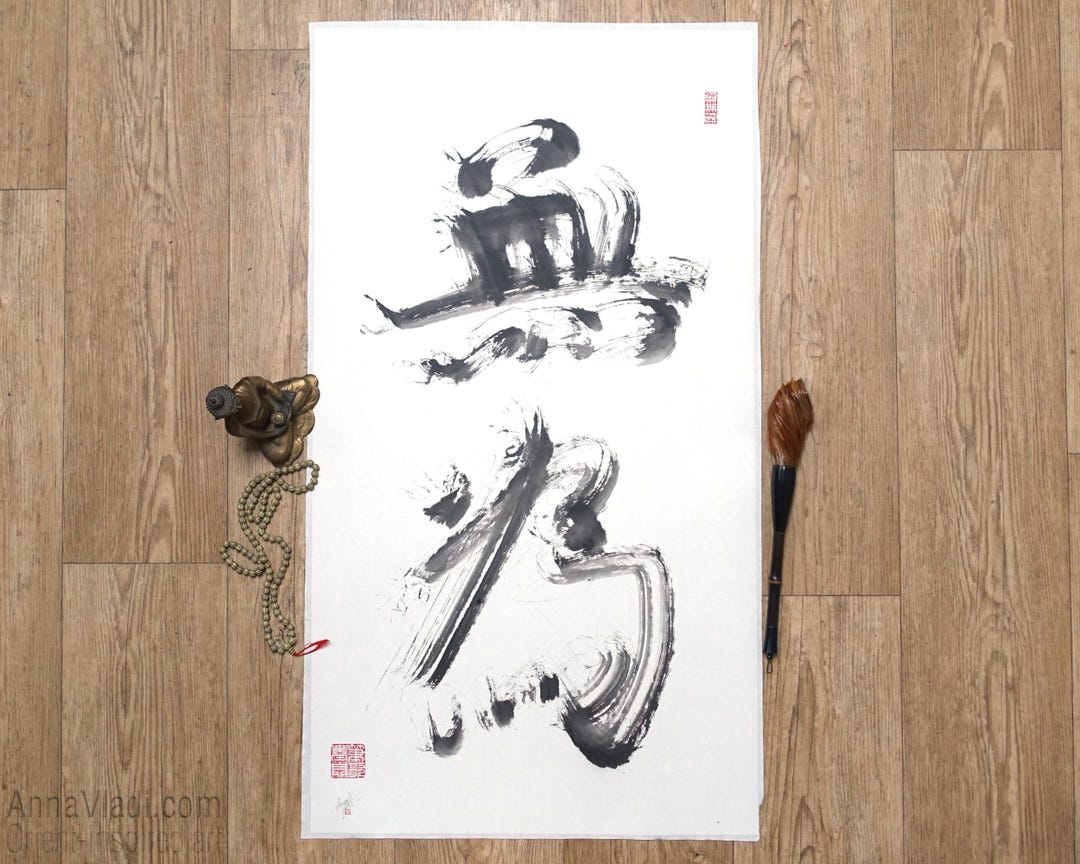 無為
AnnaVladi.com
Orient-inspired art